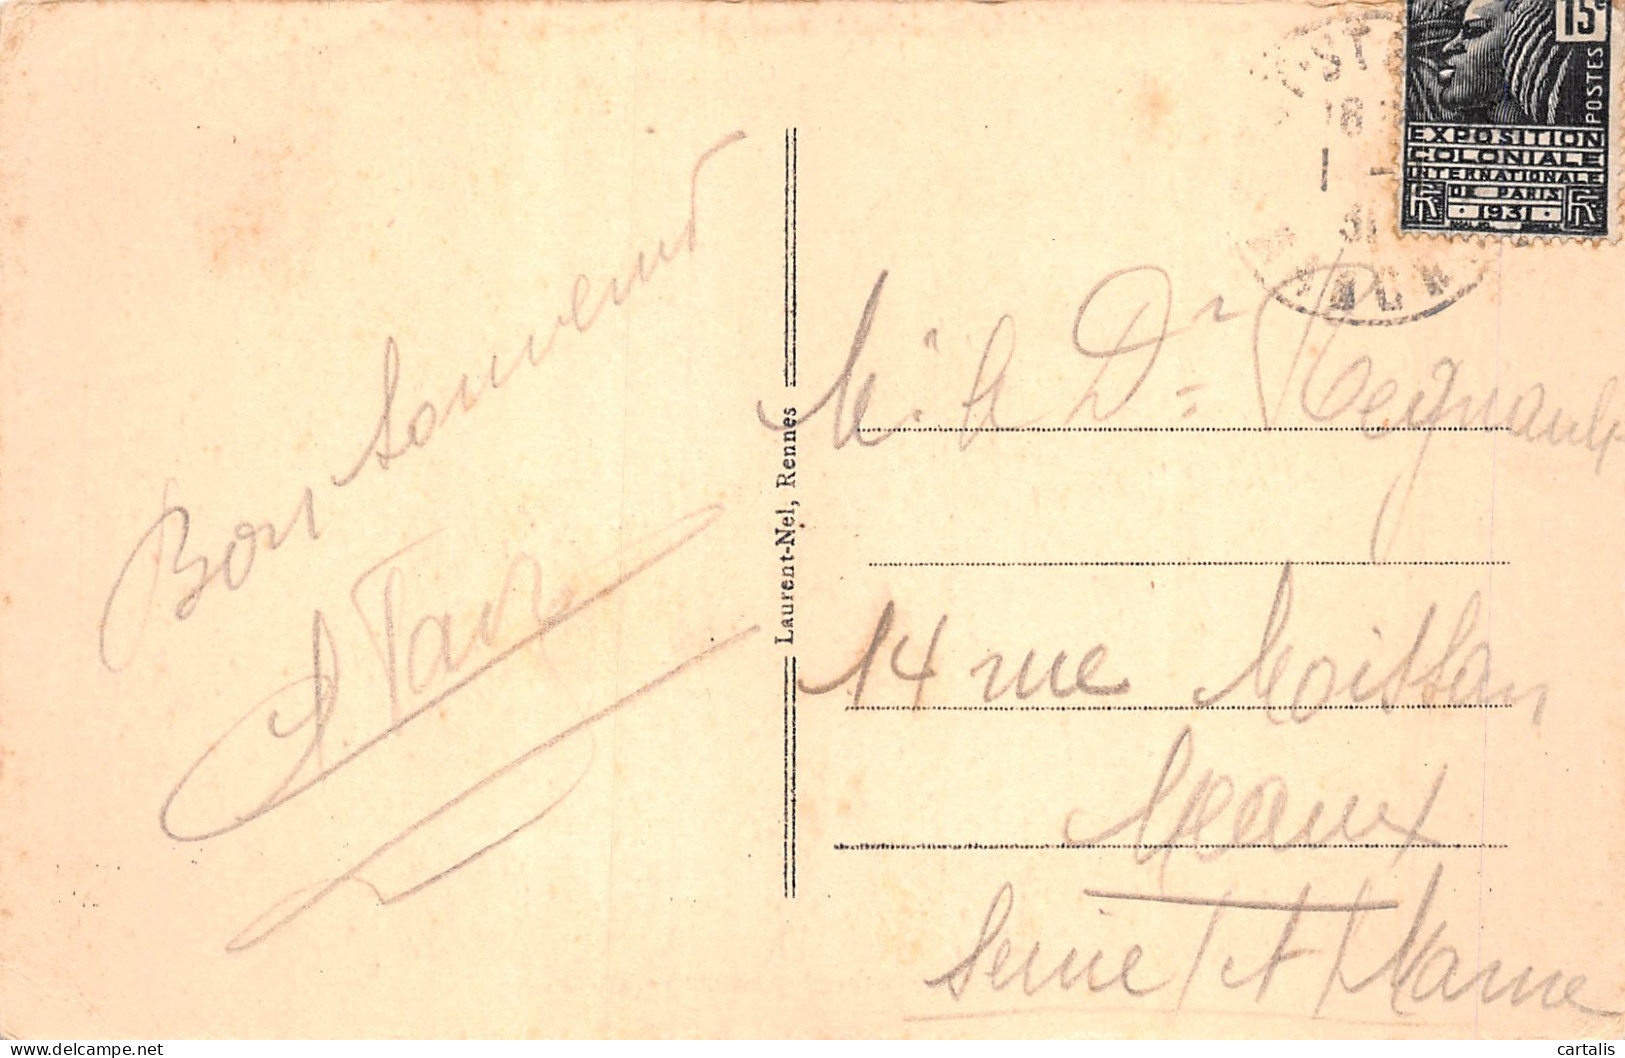 Bon souvenir
Laurent-Nel, Rennes
15c
POSTES
EXPOSITION
COLONIALE
INTERNATIONALE
DE PARIS
RF 1931 RF
ST
18
31
MANCHE
Mr le Dr Regnault
14 rue Moissan
Meaux
Seine et Marne
cartalis